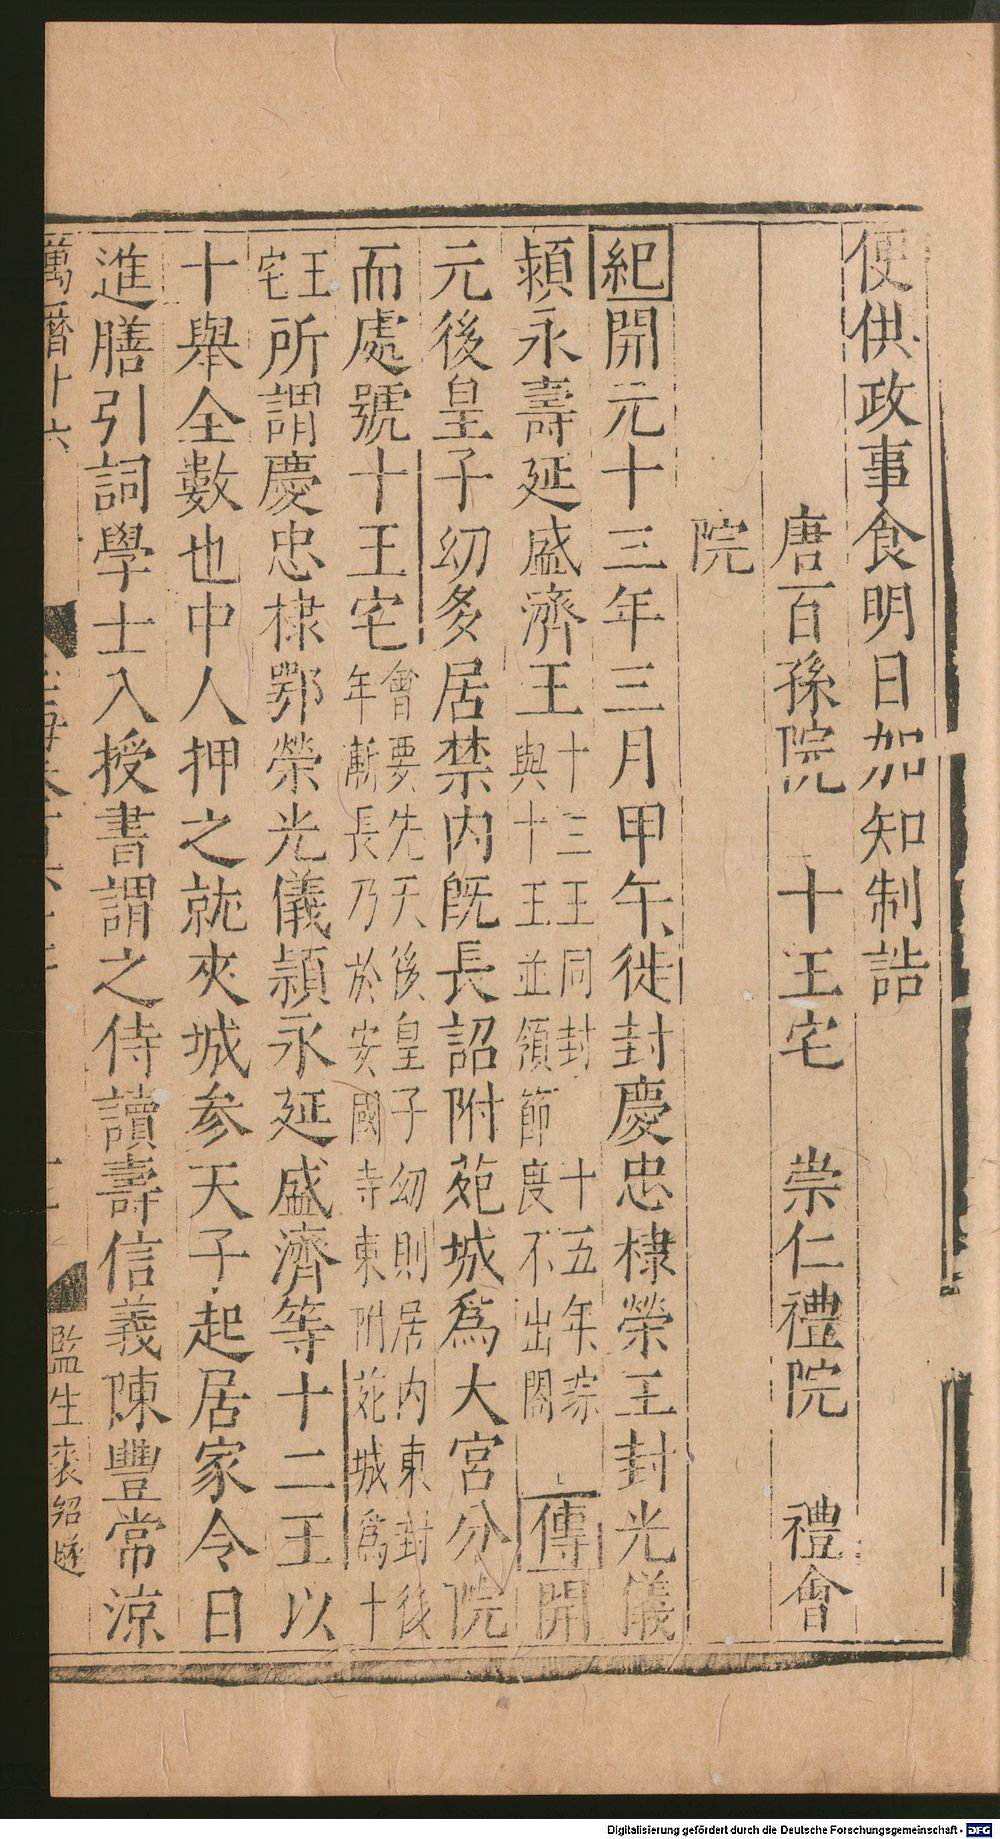 便供政事食明日加知制誥
唐百孫院　十王宅　崇仁禮院　禮會
院
紀開元十三年三月甲午徙封慶忠棣榮王封光儀
潁永壽延盛濟王十三王同封　十五年琮與十王並領節度不出閤　傳開
元後皇子幼多居禁內既長詔附苑城爲大宮分院
而處號十王宅會要先天後皇子幼則居內東封後年漸長乃於安國寺東附苑城爲十
王宅所謂慶忠棣鄂榮光儀潁永延盛濟等十二王以
十舉全數也中人押之就夾城参天子起居家令日
進膳引詞學士入授書謂之侍讀壽信義陳豐常涼
萬曆十六
監生裘紹
Digitalisierung gefördert durch die Deutsche Forschungsgemeinschaft - DFG